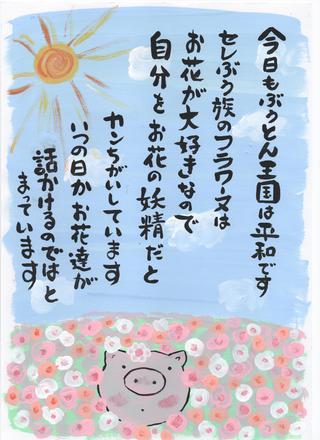 今日もぶうとん王国は平和です
セレぶう族のフラワーヌは
お花が大好きなので
自分をお花の妖精だと
カンちがいしています
いつの日かお花達が
話かけるのではと
まっています